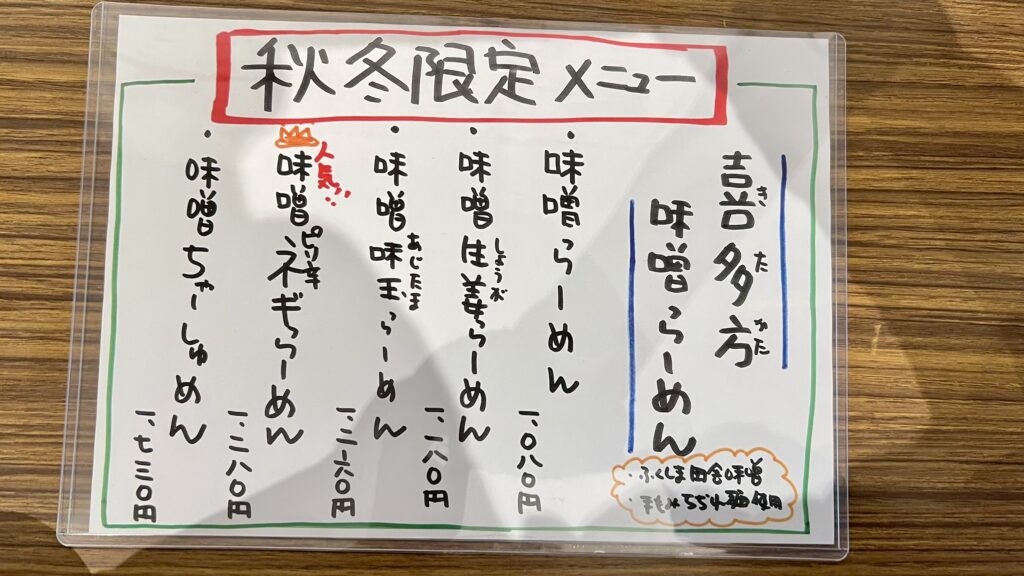 秋冬限定メニュー
喜多方
きたかた
味噌らーめん
・ふくしま田舎味噌
・手もみちぢれ麺使用
・味噌らーめん
一、〇八〇円
・味噌生姜らーめん
しょうが
一、一八〇円
・味噌味玉らーめん
あじたま
一、二一六〇円
人気っ!!
味噌ピリ辛ネギらーめん
一、二八〇円
・味噌ちゃーしゅめん
一、七三〇円